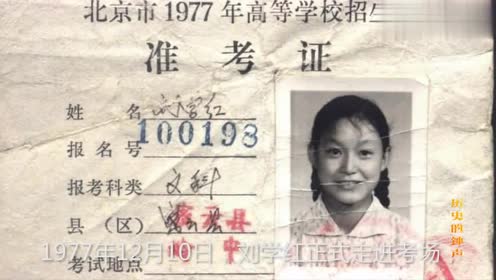 北京市1977年高等学校招
准考证
姓名 刘学红
报名号 100198
报考科类 文科
县（区） 密云县
密云县
考试地点 中
1977年12月10日 刘学红正式走进考场
历史的钟声